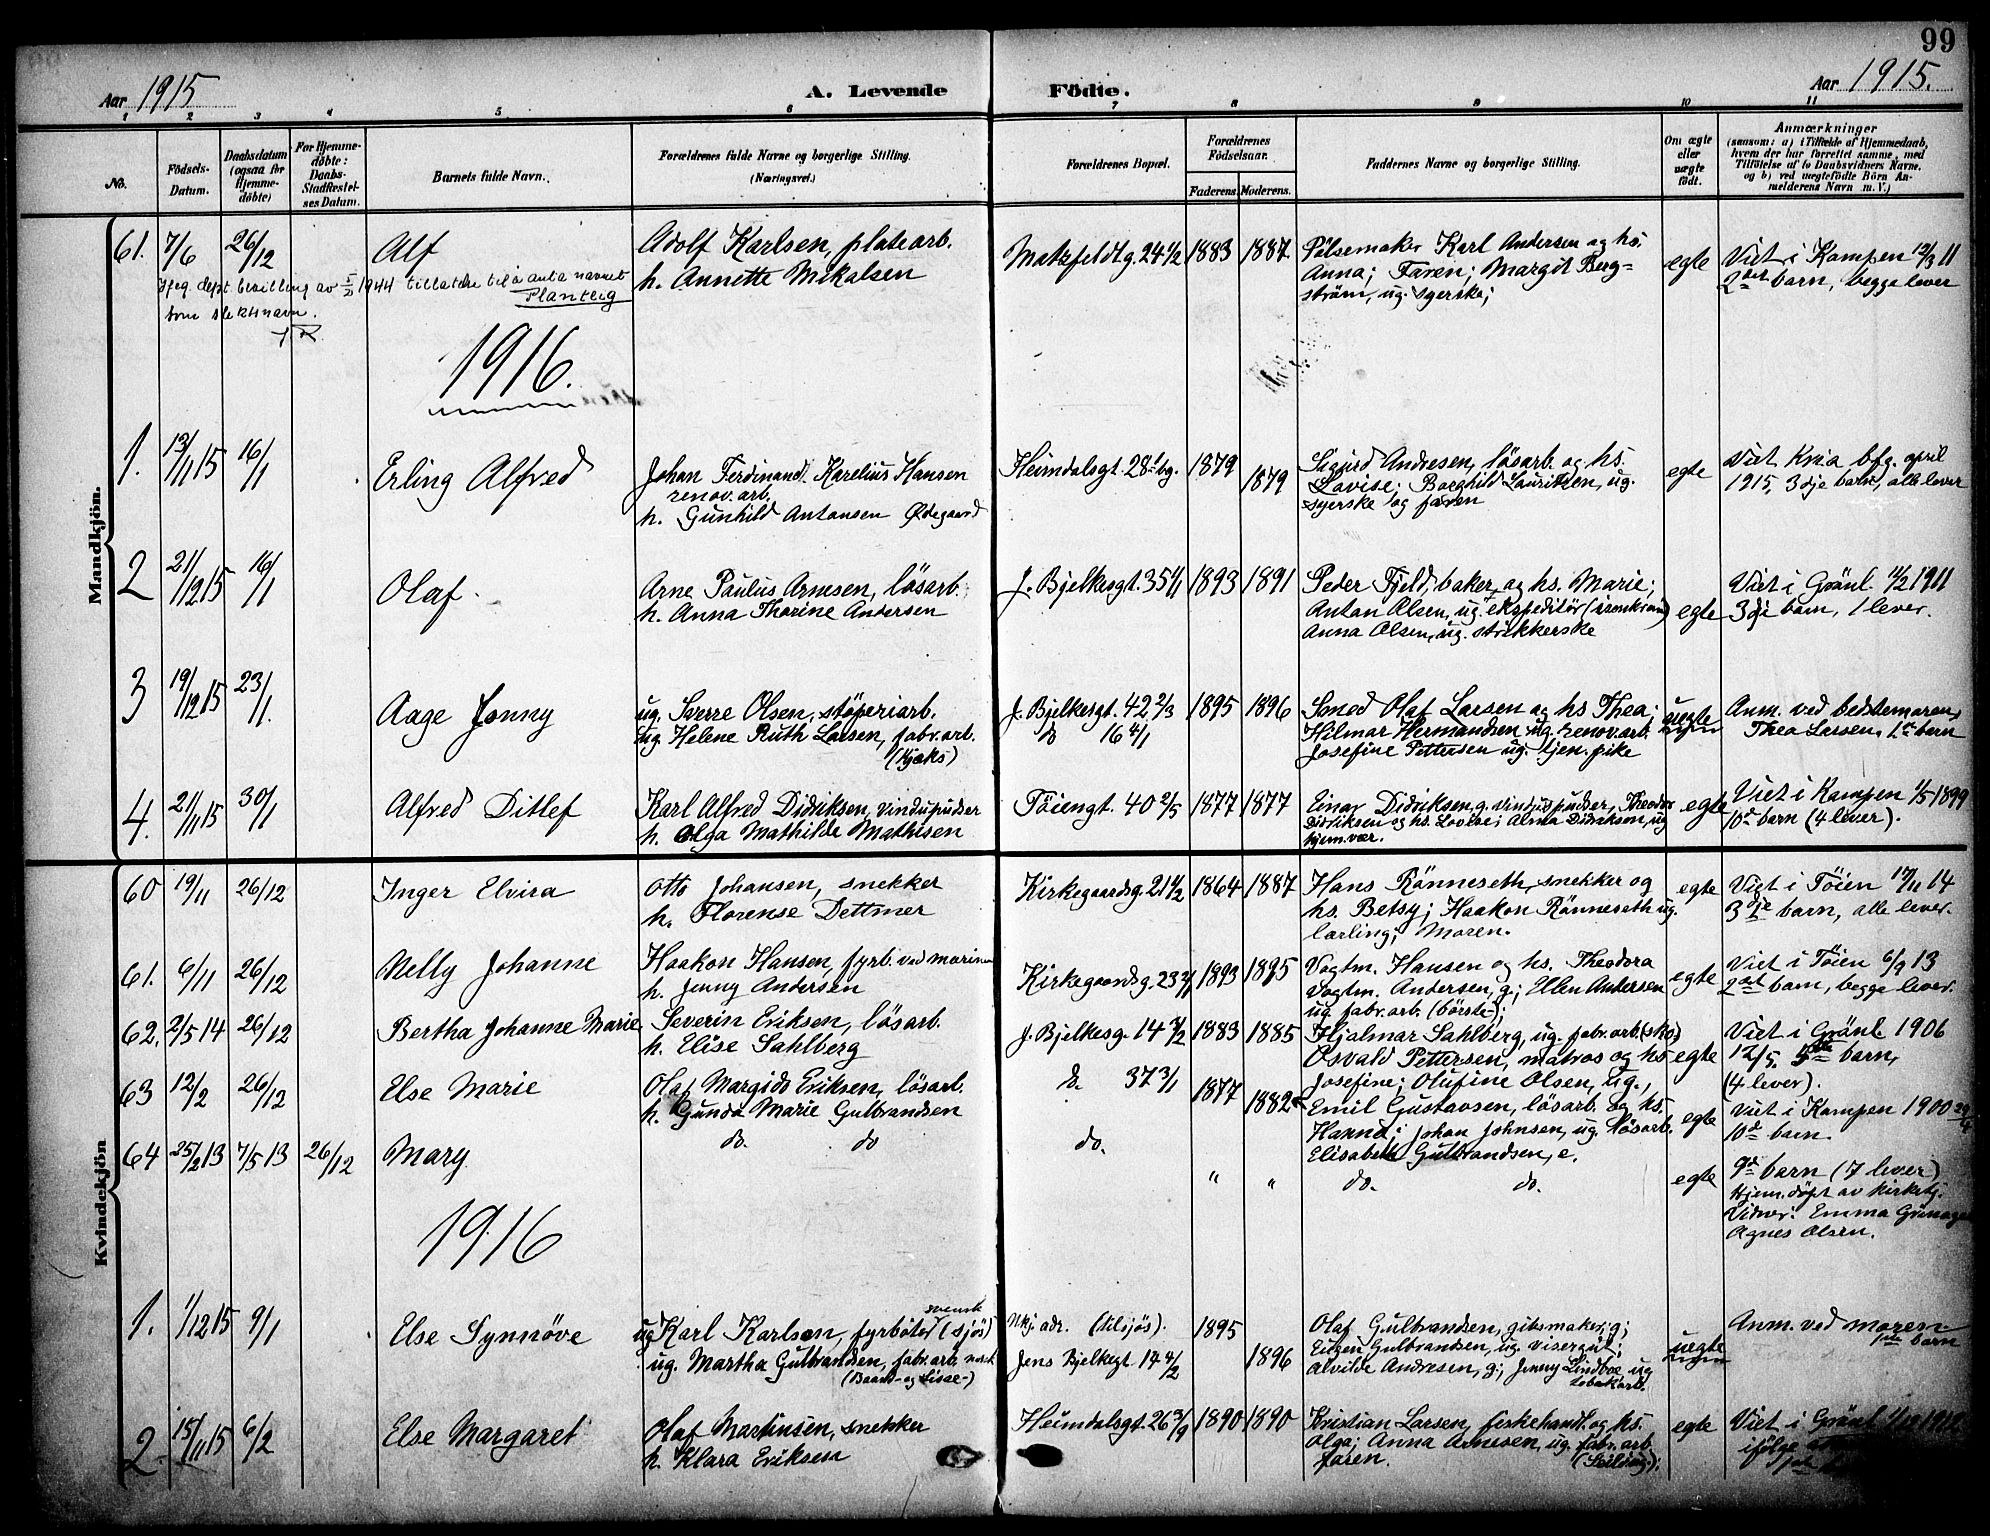 99
Aar 1915
A. Levende Födte.
Aar 1915.
1 2 3 4 5 6 7 8 9 10 11
No.
Födsels-Datum.
Daabsdatum (ogsaa for Hjemme-döbte)
For Hjemme-döbte: Daabs-Stadfæstel-ses Datum.
Barnets fulde Navn.
Forældrenes fulde Navne og borgerlige Stilling.
(Næringsvei.)
Forældrenes Bopæl.
Forældrenes Födselsaar.
Faderens. Moderens.
Faddernes Navne og borgerlige Stilling.
Om ægte eller uægte födt.
Anmærkninger
(saasom: a) i Tilfælde af Hjemmedaab, hvem der har forrettet samme, med Tilföielse af to Daabsvidners Navne. og b) ved uægtefödte Börn Anmelderens Navn m. V.)
Mandkjön.
61. 7/6 26/12 Alf
Adolf Karlsen, platearb.
h. Annette Mikalsen
Matzfeldtg. 24 1/2 1883 1887
Pølsemaker Karl Andersen og hs.
Anna; Faren; Margit Berg=
ström, ug. syerske;
egte
Viet i Kampen 12/3 11
2det barn, begge lever
bevilling av 1944 tillatelse til å anta navnet
Plantelig
som slektsnavn.
1916.
1. 13/11 15 16/1 Erling Alfred
Johan Ferdinand Karelius Hansen
renov. arb.
h. Gunhild Antonsen Ødegaard
Heimdalsgt. 28 1 bg. 1879 1879
Sigurd Andresen, løsarb. og hs.
Lovise; Borghild Lauritzen, ug.
syerske og faren
egte
Viet Kria bfg. april
1915, 3dje barn, alle lever
2 21/12 15 16/1 Olaf
Arne Paulus Arnesen, løsarb.
h. Anna Thorine Andersen
J. Bjelkesgt. 35 4/1 1893 1891
Peder Fjeld, baker, og hs. Marie;
Anton Olsen, ug. ekspeditör
Anna Olsen, ug. strikkerske
egte
Viet i Grönl. 1911
3dje barn, 1 lever.
3 19/12 15 23/1. Aage Jonny
ug. Sverre Olsen, støperiarb.
ug Helene Ruth Larsen, fabr. arb.
(kjæks)
J. Bjelkesgt. 42 2/3 1895 1896
do 16 4/1
Smed Olaf Larsen og hs Thea;
Hilmar Hermandsen ug. renov. arb.
Josefine Pettersen ug. tjen. pike
uegte
Anm. ved bedstemoren,
Thea Larsen. 1ste barn
4. 21/11 15 30/1 Alfred Ditlef
Karl Alfred Didriksen, vindupudser
h. Olga Mathilde Mathisen
Töiengt. 40 2/5 1877 1877
Einar Didriksen, g. vinduspudser, Theodor
Didriksen og hs. Lovise; Alma Didriksen, ug
hjem. vær.
egte
Viet i Kampen 1/5 1899
10de barn (4 lever).
Kvindekjön
60 19/11 26/12 Inger Elvira
Otto Johansen, snekker
h. Florense Dettmer
Kirkegaardsg. 21 4/2 1864 1887
Hans Rönneseth, snekker og
hs. Betsy; Haakon Rönneseth ug.
lærling; Moren.
egte
Viet i Töien 14
3dje barn, alle lever.
61. 6/11 26/12 Nelly Johanne
Haakon Hansen, fyrb. ved marinen
h. Jenny Andersen
Kirkegaardsg. 23 1893 1895
Vogtm. Hansen og hs. Theodora
Vogtm. Andersen, g; Ellen Andersen
ug. fabr. arb. (børste-);
egte
Viet i Töien 6/9 13
2det barn, begge lever.
62. 2/5 14 26/12 Bertha Johanne Marie
Severin Eriksen, løsarb.
h. Elise Sahlberg
J. Bjelkesg. 14 3/2 1883 1885
Hjalmar Sahlberg, ug. fabr. arb. (sko)
Osvald Pettersen, matros og hs
Josefine; Olufine Olsen, ug.,
egte
Viet i Grönl 1906
12/5, 5te barn,
(4 lever).
63 12/2 26/12 Else Marie
Olaf Margido Eriksen, løsarb.
h. Gunda Marie Gulbrandsen
d. 37 3/1 1877 1882
Emil Gustavsen, løsarb. og hs.
Hanna; Johan Johnsen, ug. løsarb.
Elisabeth Gulbrandsen, e.
egte
Viet i Kampen 1900 29/4
10de barn.
64 25/2 13 7/5 13 26/12 Mary
do. do
do. " "
do. do.
egte
9de barn (7 lever)
Hjem. døpt av kirketj.
Vidner: Emma
Agnes Olsen.
1916
1. 1/12 15 9/1 Else Synnöve
svensk
ug Karl Karlsen, fyrböter (sjös)
ug. Martha Gulbrandsen, fabr. arb. norsk
(Baand- og Lisse-)
Ukj. adr. (tilsjös). 1895
Jens Bjelkegt 14 4/2 1896
Olaf Gulbrandsen, gibsmaker, g;
Eugen Gulbrandsen, ug. visergut;
Alvilde Andresen, g; Jenny Lindboe, ug
tobakarb.
uegte
Anm. ved moren
1ste barn
2. 15/11 15 6/2 Else Margaret
Olaf Martinsen, snekker
h. Klara Eriksen
Heimdalsgt. 26 3/9 1890 1890
Kristian Larsen, fiskehandl. og hs.
Olga; Anna Arnesen, ug. fabr. arb.
faren.
egte
Viet i Grönl 1912
ifölge